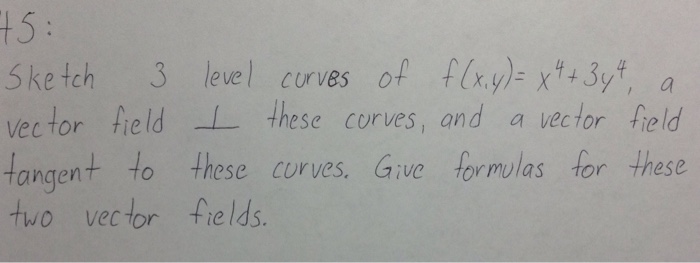 #5:
Sketch 3 level curves of f(x,y)= x⁴+3y⁴, a
vector field ⊥ these curves, and a vector field
tangent to these curves. Give formulas for these
two vector fields.